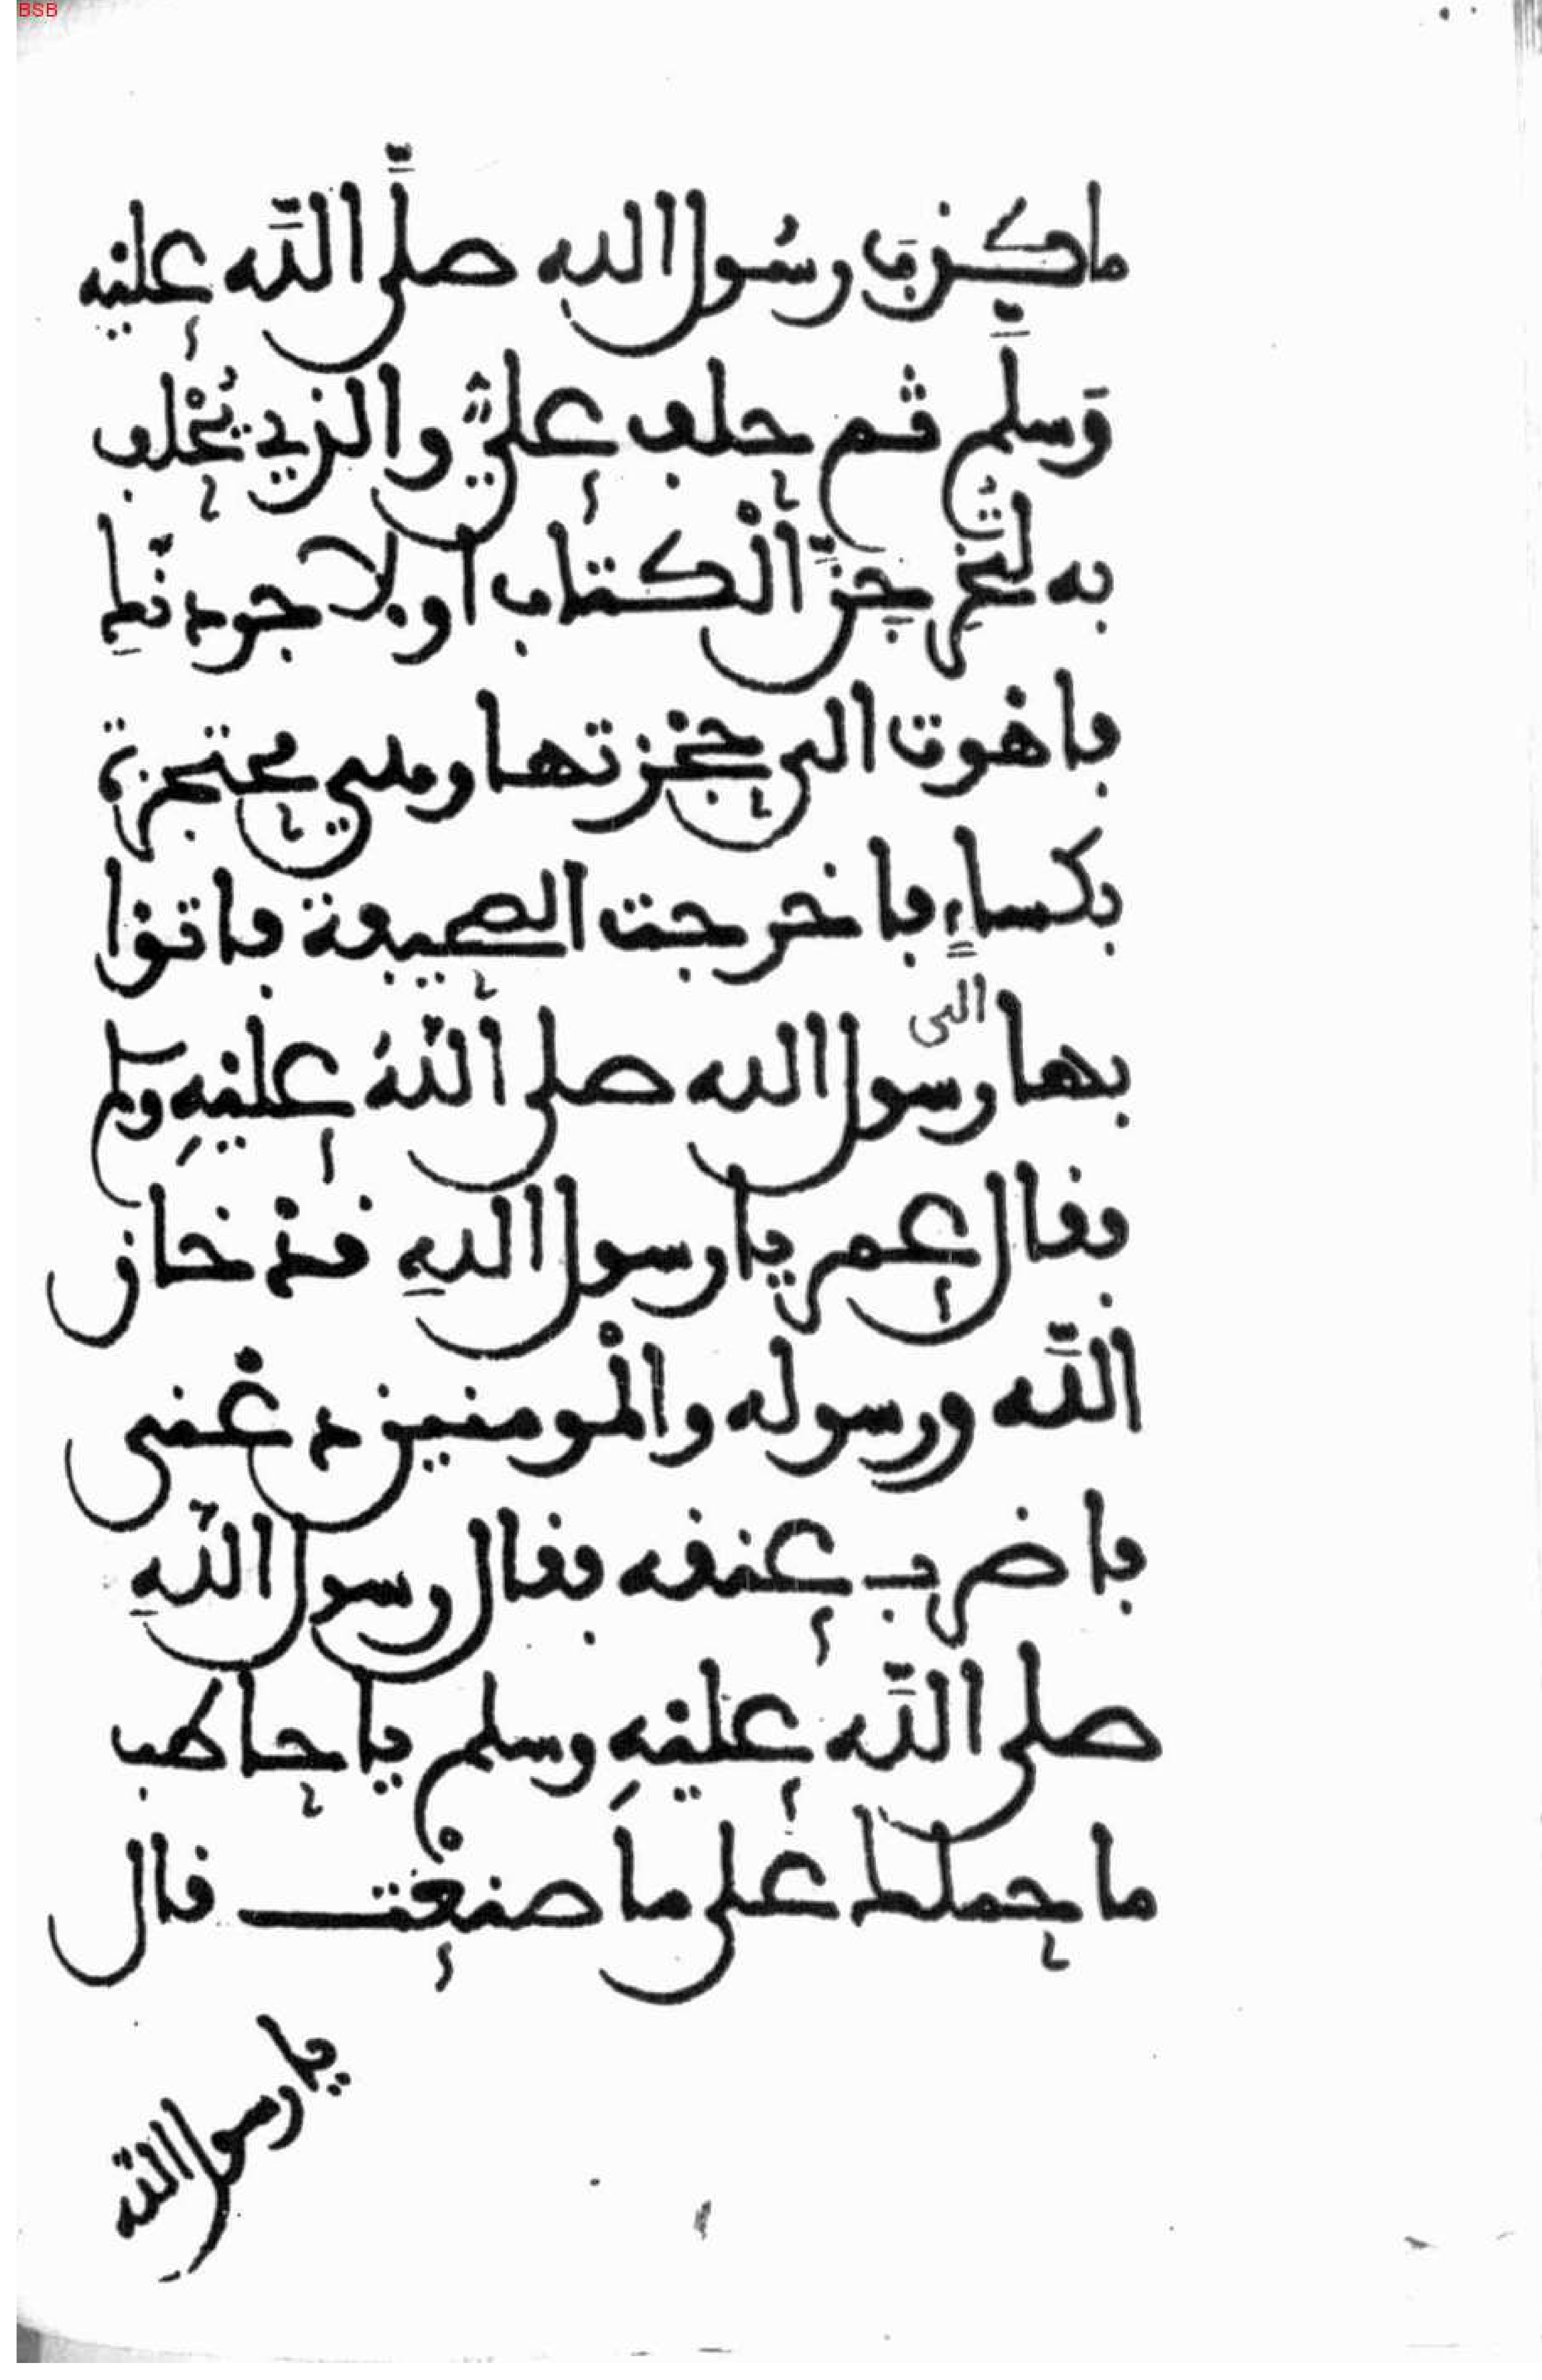 BSB
ما كذب رسول الله صلَّى اللَّه عليه
وَسلَّم ثم حلف عليٌّ والذي يُحْلف
به لتُخرِجِنَّ الْكتاب اولا جردنكِ
فاهوت الى حجزتها وهي محتجزة
بكساءٍ فاخرجت الصحيفة فاتوا
بها الى رسول الله صلى اللهُ عليهِ وسلم
فقال عمر يا رسول اللهِ قدْ خان
اللَّه ورسوله والْمومنين دعْنى
فاضرب عنقه فقال رسول اللهِ
صلى اللَّه عليهِ وسلم يا حاطب
ما حملك على ما صنعْت قال
يا رسول الله